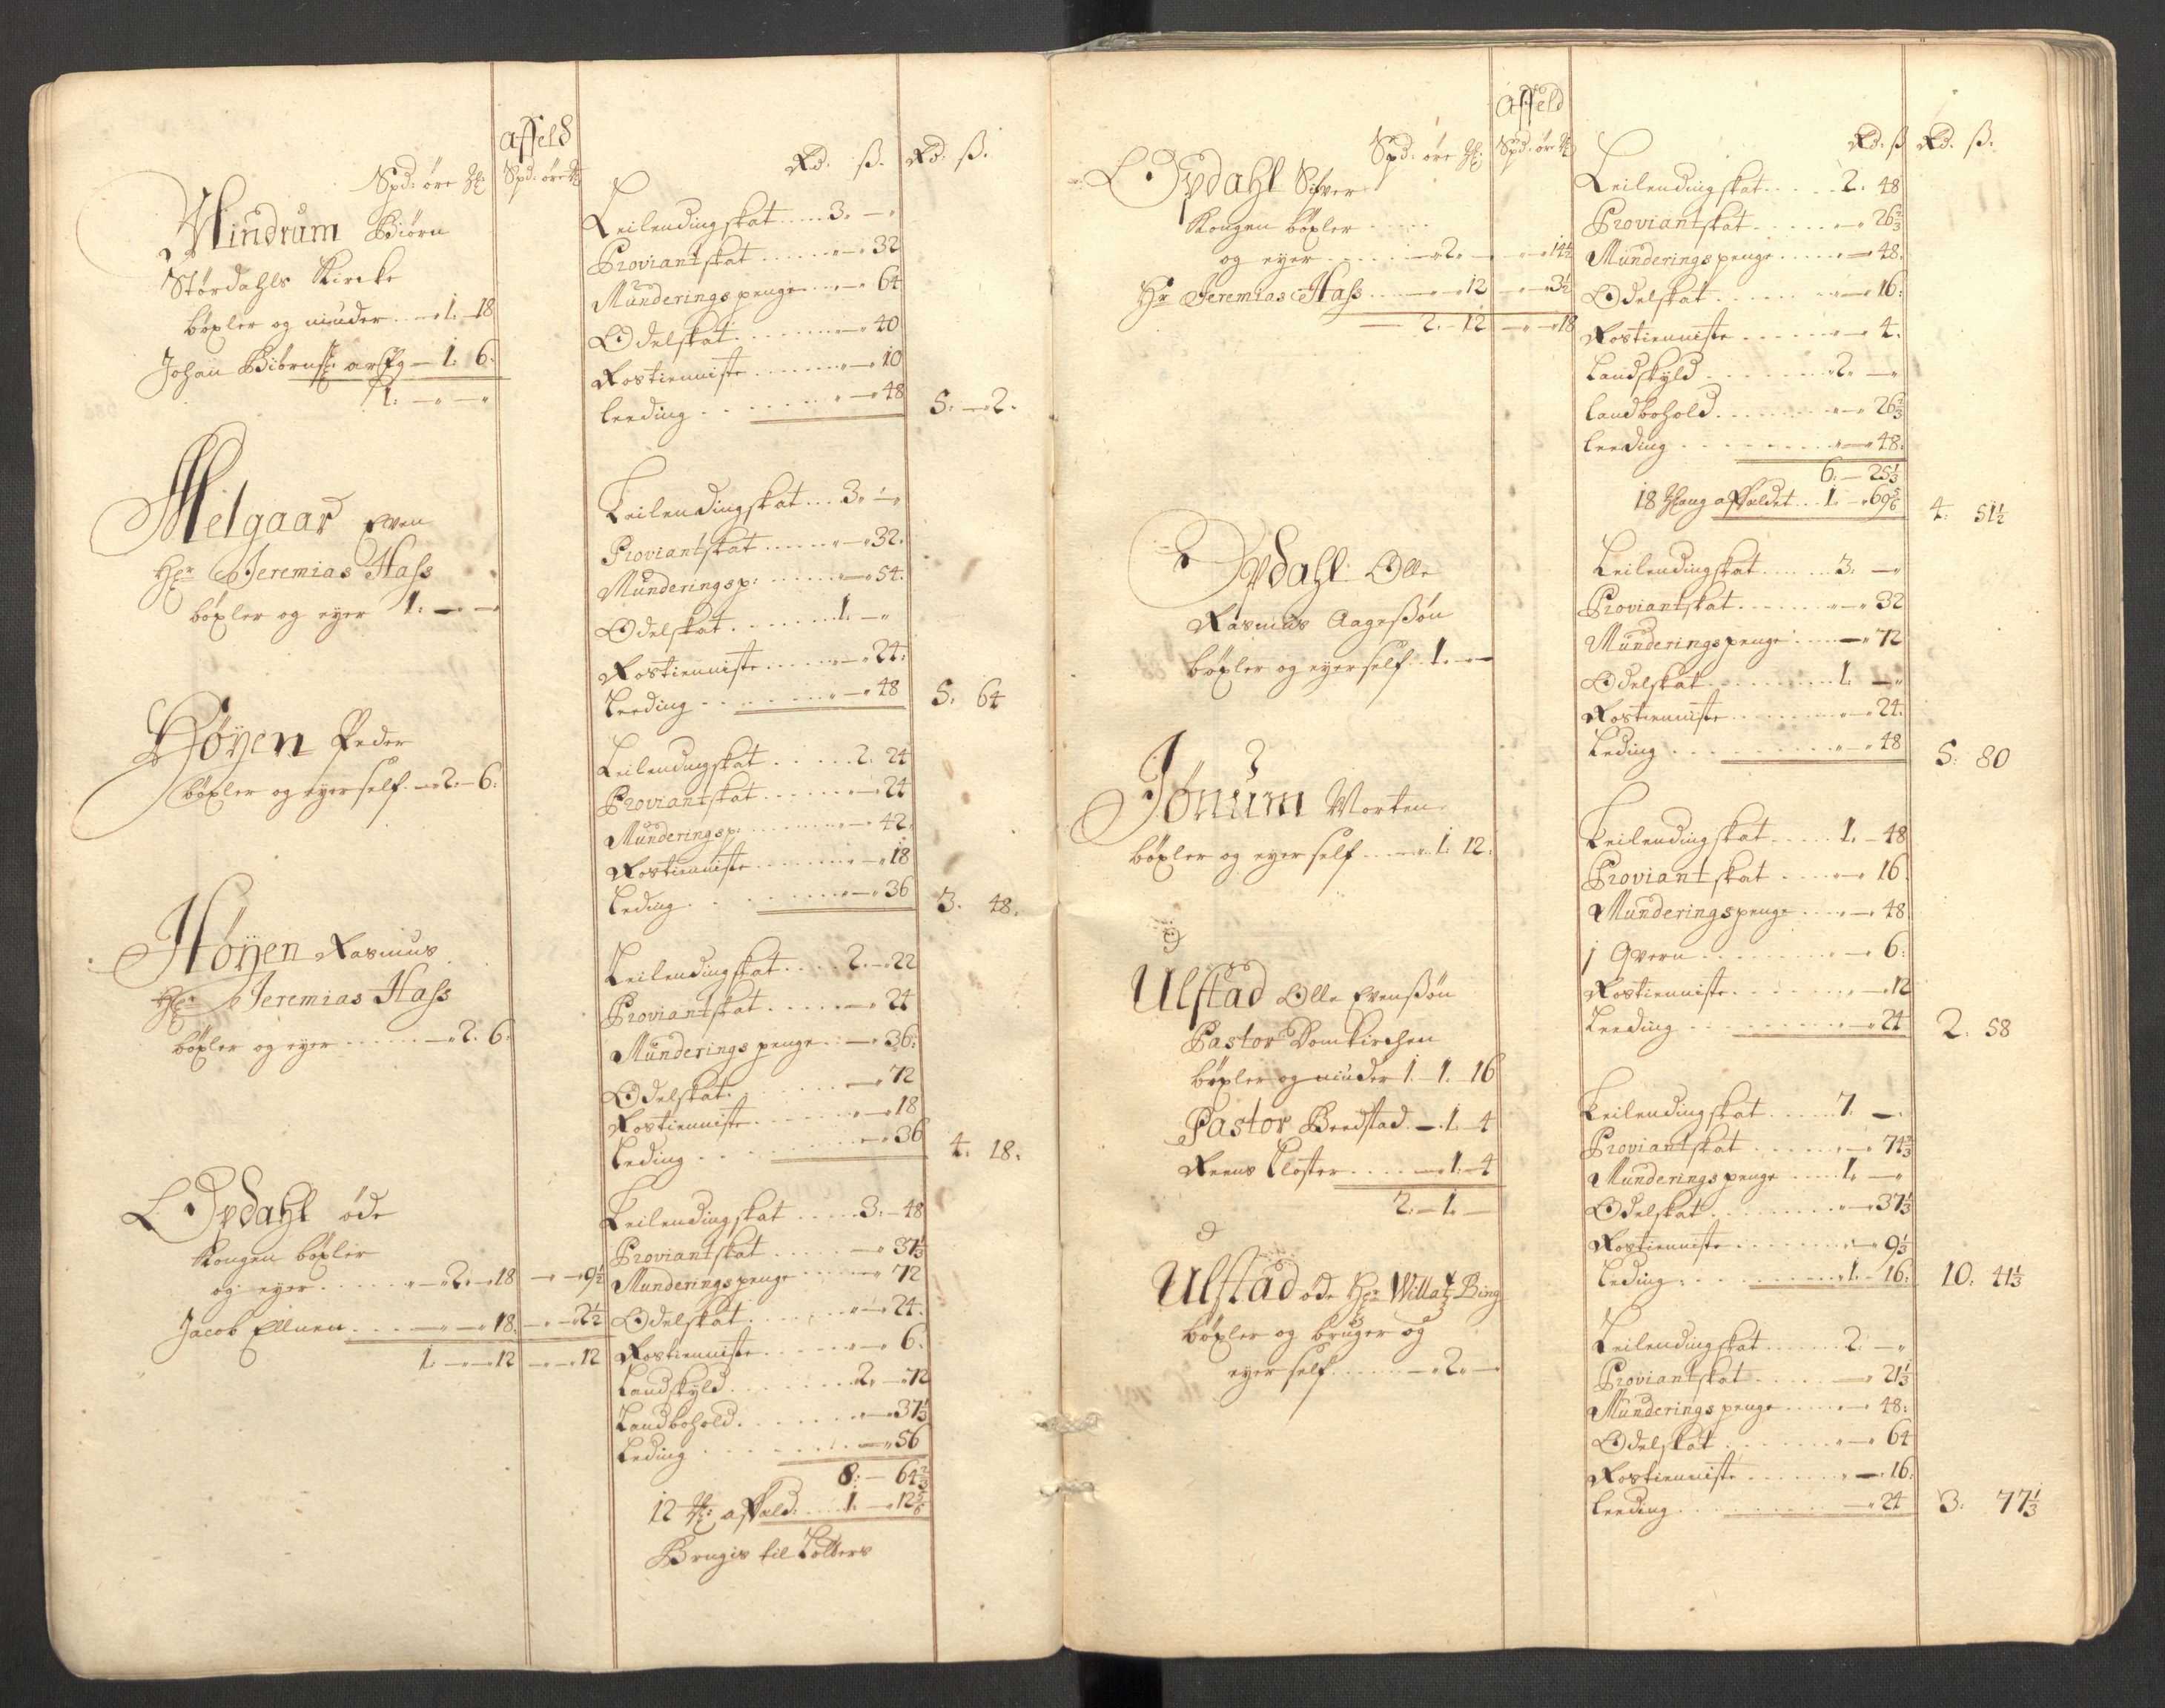 affeld
Spd: øre
Spd: øre
Rd. ß.
Rd. ß.
Mindrum Biörn
Størdahls Kircke
böxler og niuder 1. 18
Johan Biörns 1. 6.
1. — —
Leilendingskat 3. —
Proviantskat 32
Munderingspenge 64
Odelskat 40
Rostienniste 10
Leeding 48
5. — 2.
Melgaar Even
Hr Jeremias Hass
böxler og eyer 1. — —
Leilendingskat 3. —
Proviantskat 32.
Munderingsp: 54.
Odelskat 1. —
Rostienniste 24.
Leeding 48
5. 64
Höyen Peder
böxler og eyer self 2. 6.
Leilendingskat 2. 24
Proviantskat 24
Munderingsp: 42.
Rostienniste 18
Leding 36
3. 48.
Höyen Rasmus
Hr Jeremias Hass
böxler og eyer 2. 6.
Leilendingskat 2. 22
Proviantskat 24
Munderings penge 36.
Odelskat 72
Rostienniste 18
Leding 36
4. 18.
Opdahl öde
Kongen böxler
og eyer 2. 18 — 9½
Jacob Ellnen 18. — 2½
1. — 12 — 12
Leilendingskat 3. 48
Proviantskat 37⅓
Munderingspenge 72
Odelskat 24.
Rostienniste 6.
Landskyld 2. 72
Landbohold 37⅓
Leding 56
8. — 64⅔
12 affeld: 1. 12⅚
Brugis til
affeld
Spd: øre
Spd: øre
Rd. ß
Rd. ß.
Opdahl Sifver
Kongen böxler
og eyer 2. — 14½
Hr Jeremias Hass 12 — 3½
2. 12 — 18
Leilendingskat 2. 48
Proviantskat 26⅔
Munderingspenge 48.
Odelskat 16.
Rostienniste 4.
Landskyld 2. —
Landbohold 26⅔
Leeding 48.
6. — 25⅓
18 affeldet 1. 69⅚
4. 51½
Opdahl Olle
Rasmus Aagessön
böxler og eyer self 1. — —
Leilendingskat 3. —
Proviantskat 32
Munderingspenge 72
Odelskat 1. —
Rostienniste 24.
Leding 48
5. 80
Jönum Morten
böxler og eyer self 1. 12.
Leilendingskat 1. 48
Proviantskat 16
Munderingspenge 48
1 Qvern 6.
Rostienniste 12
Leeding 24
2. 58
Ulstad Olle Evenssön
Pastor Domkirchen
böxler og niuder 1. 1. 16
Pastor Beedstad 1. 4
Reens Closter 1. 4
2. 1. —
Leilendingskat 7. —
Proviantskat 74⅔
Munderings penge 1. —
Odelskat 37⅓
Rostienniste 9⅓
Leding 1. 16.
10. 41⅓
Ulstad öde Hr Willatz Bing
böxler og bruger og
eyer self 2. —
Leilendingskat 2. —
Proviantskat 21⅓
Munderings penge 48.
Odelskat 64
Rostienniste 16.
Leeding 24
3. 77⅓